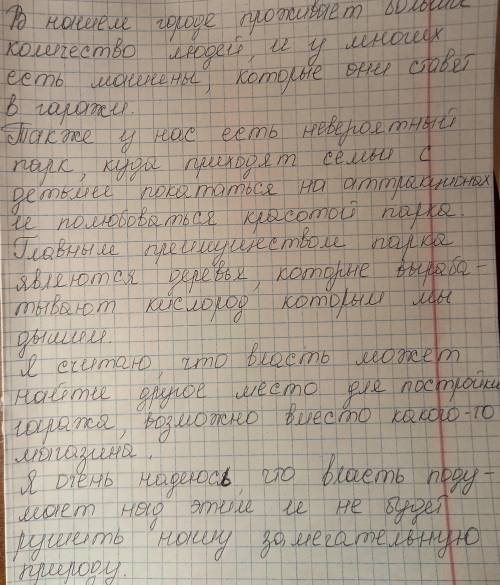 В нашем городе проживает большое
количество людей, и у многих
есть машины, которые они ставят
в гаражи.
Также у нас есть невероятный
парк, куда приходят семьи с
детьми покататься на аттракционах
и полюбоваться красотой парка.
Главным преимуществом парка
являются деревья, которые выраба-
тывают кислород, которым мы
дышим.
Я считаю, что власть может
найти другое место для постройки
гаража, возможно вместо какого-то
магазина.
Я очень надеюсь, что власть поду-
мает над этим и не будет
рушить нашу замечательную
природу.